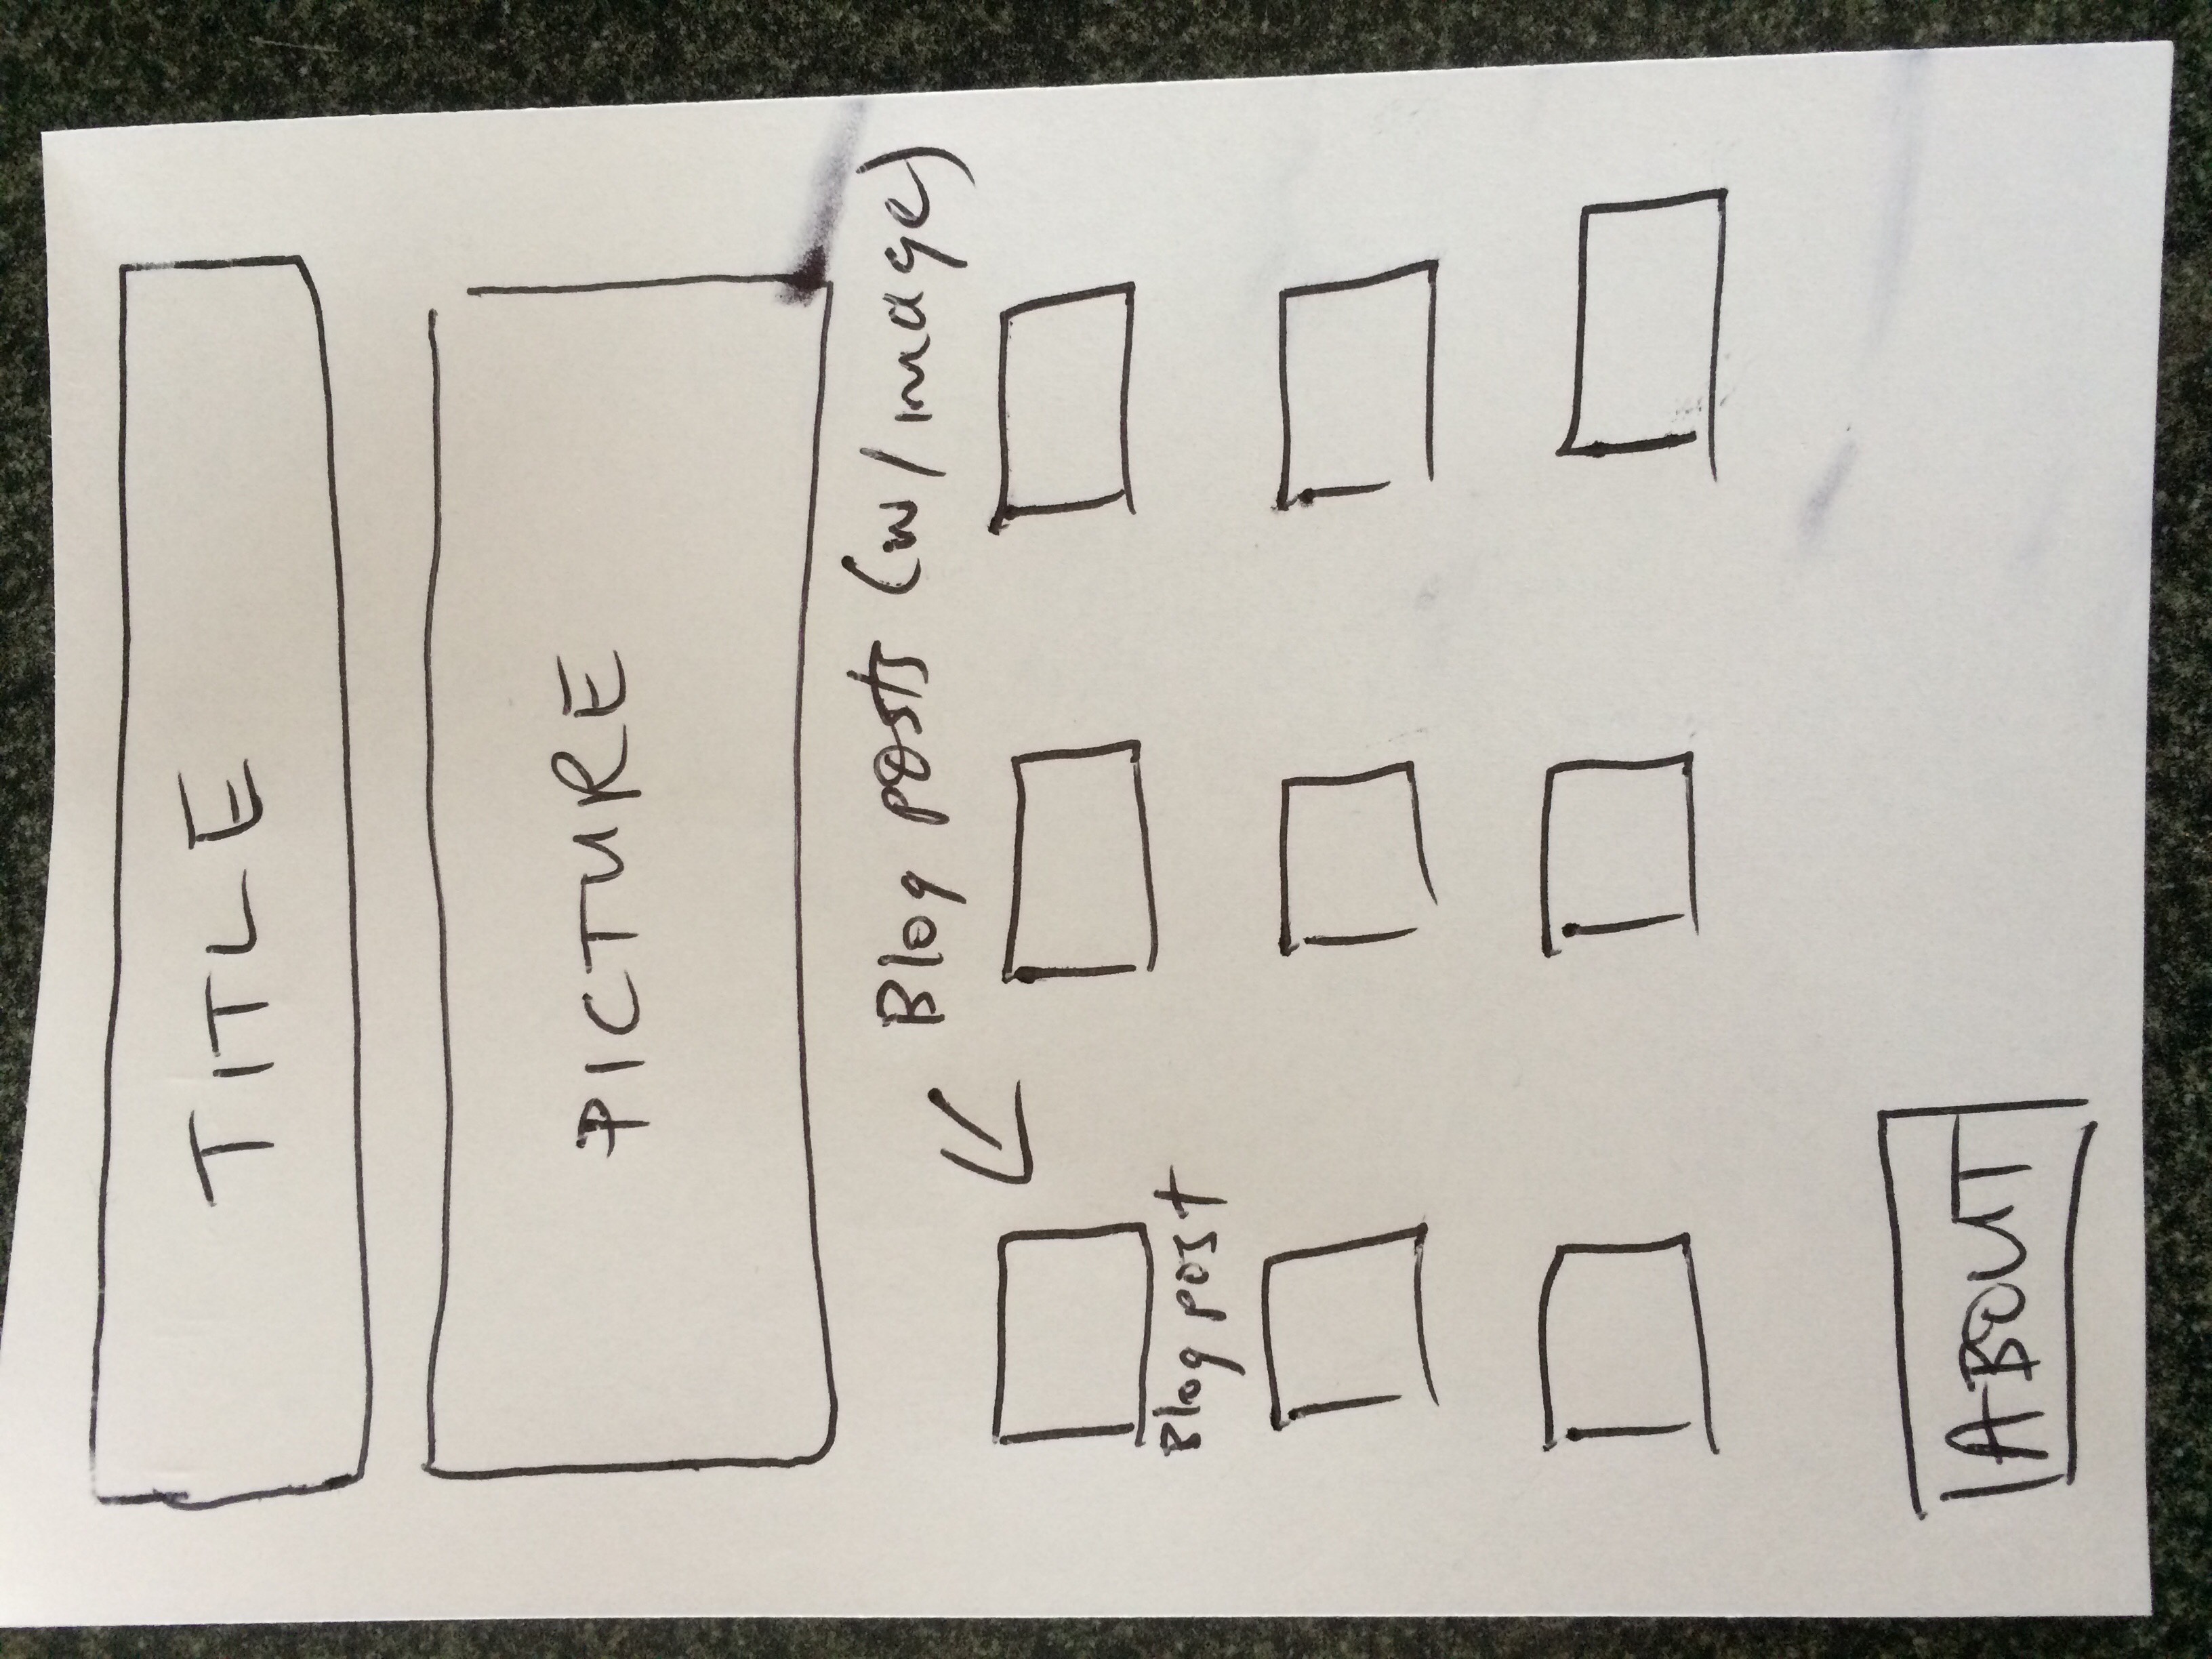 TITLE
PICTURE
Blog posts (w/image)
Blog post
ABOUT